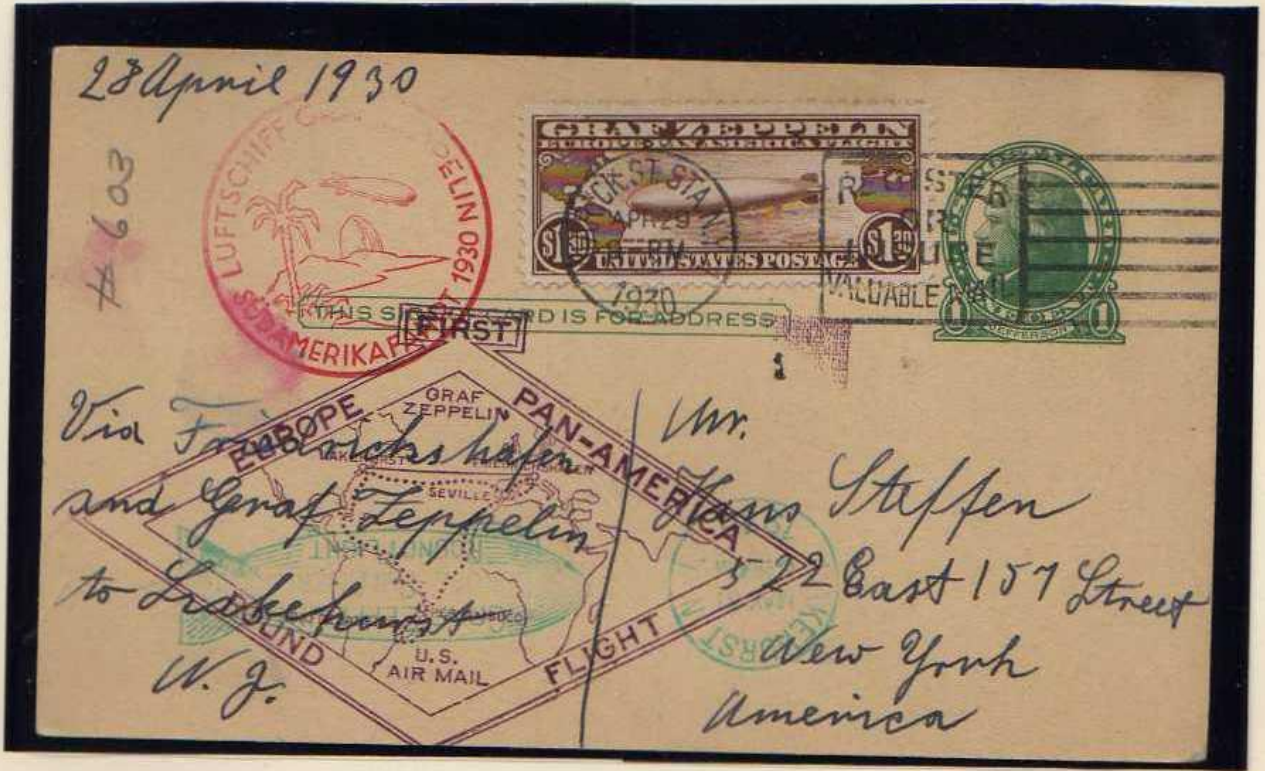 28 April 1930
# 603
LUFTSCHIFF
SÜDAMERIKAFAHRT 1930
GRAF ZEPPELIN
EUROPE-PAN AMERICA FLIGHT
$1.30 $1.30
UNITED STATES POSTAGE
ST. STA. N.Y.
APR 29
PM
1930
REGISTER
OR
INSURE
VALUABLE MAIL
1 1
JEFFERSON
THIS SIDE OF CARD IS FOR ADDRESS
FIRST
EUROPE PAN-AMERICA
ROUND FLIGHT
GRAF
ZEPPELIN
LAKEHURST FRIEDRICHSHAFEN
SEVILLE
U.S.
AIR MAIL
ROUND FLIGHT
Via Friedrickshafen
and Graf Zeppelin
to Lakehurst
N. J.
Mr.
Hans Steffen
522 East 157 Street
New York
America